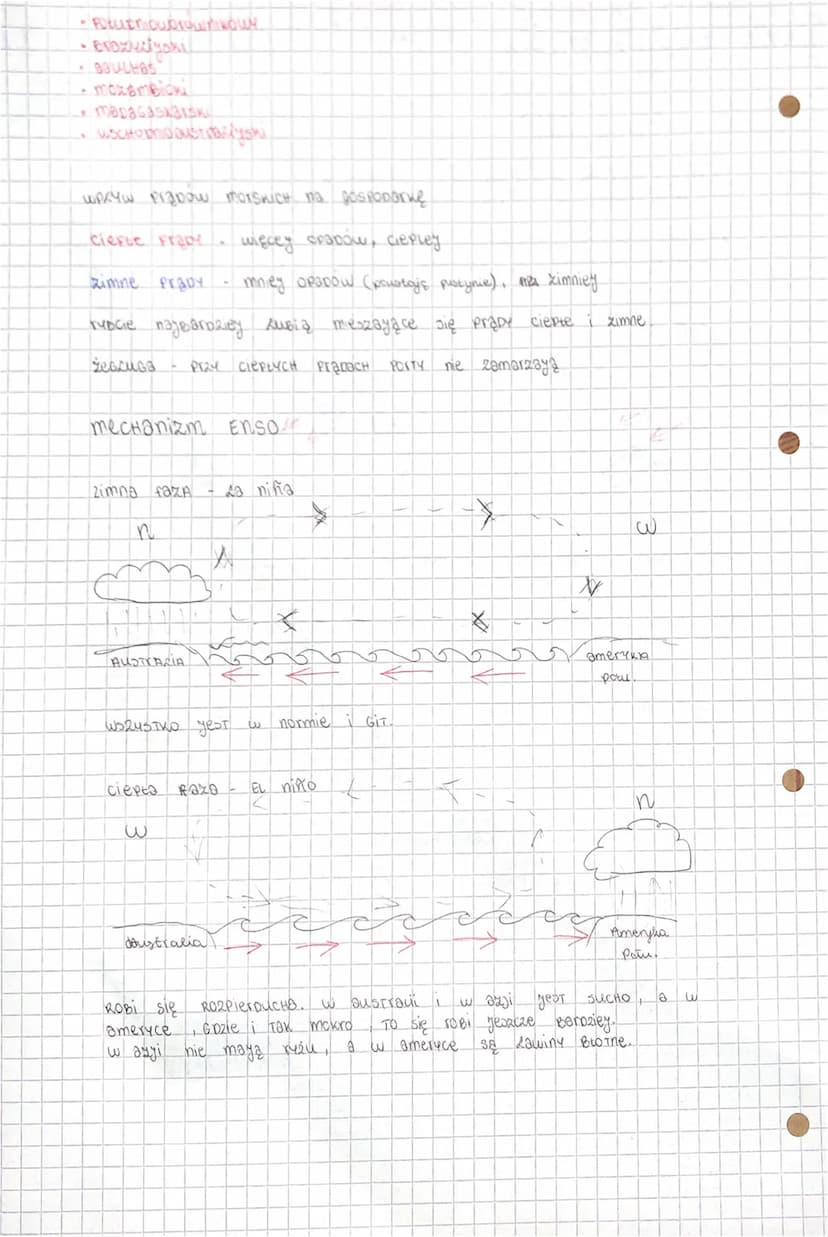 • POŁUDNIOWORÓWNIKOWY
• BRAZYLIJSKI
• AGULHAS
• MOZAMBICKI
• MADAGASKARSKI
• WSCHODNIOAUSTRALIJSKI
WPŁYW PRĄDÓW MORSKICH NA GOSPODARKĘ
CIEPŁE PRĄDY - WIĘCEJ OPADÓW, CIEPLEJ
ZIMNE PRĄDY - MNIEJ OPADÓW (powstają pustynie), zimniej
RYBCIE NAJBARDZIEJ LUBIĄ MIESZAJĄCE SIĘ PRĄDY CIEPŁE i ZIMNE.
ŻEGLUGA - PRZY CIEPŁYCH PRĄDACH PORTY nie ZAMARZAJĄ
MECHANIZM ENSO
ZIMNA FAZA - LA niña
n
W
AUSTRALIA
AMERYKA
POŁU.
WSZYSTKO JEST W normie i GIT.
CIEPŁA FAZA - EL niño
n
W
Australia
Ameryka
Połu.
ROBI SIĘ ROZPIERDUCHA. W AUSTRALII i W AZJI JEST SUCHO, A W
AMERYCE, GDZIE i TAK MOKRO, TO SIĘ ROBI JESZCZE BARDZIEJ.
W AZJI NIE MAJĄ RYŻU, A W AMERYCE SĄ LAWINY BŁOTNE.